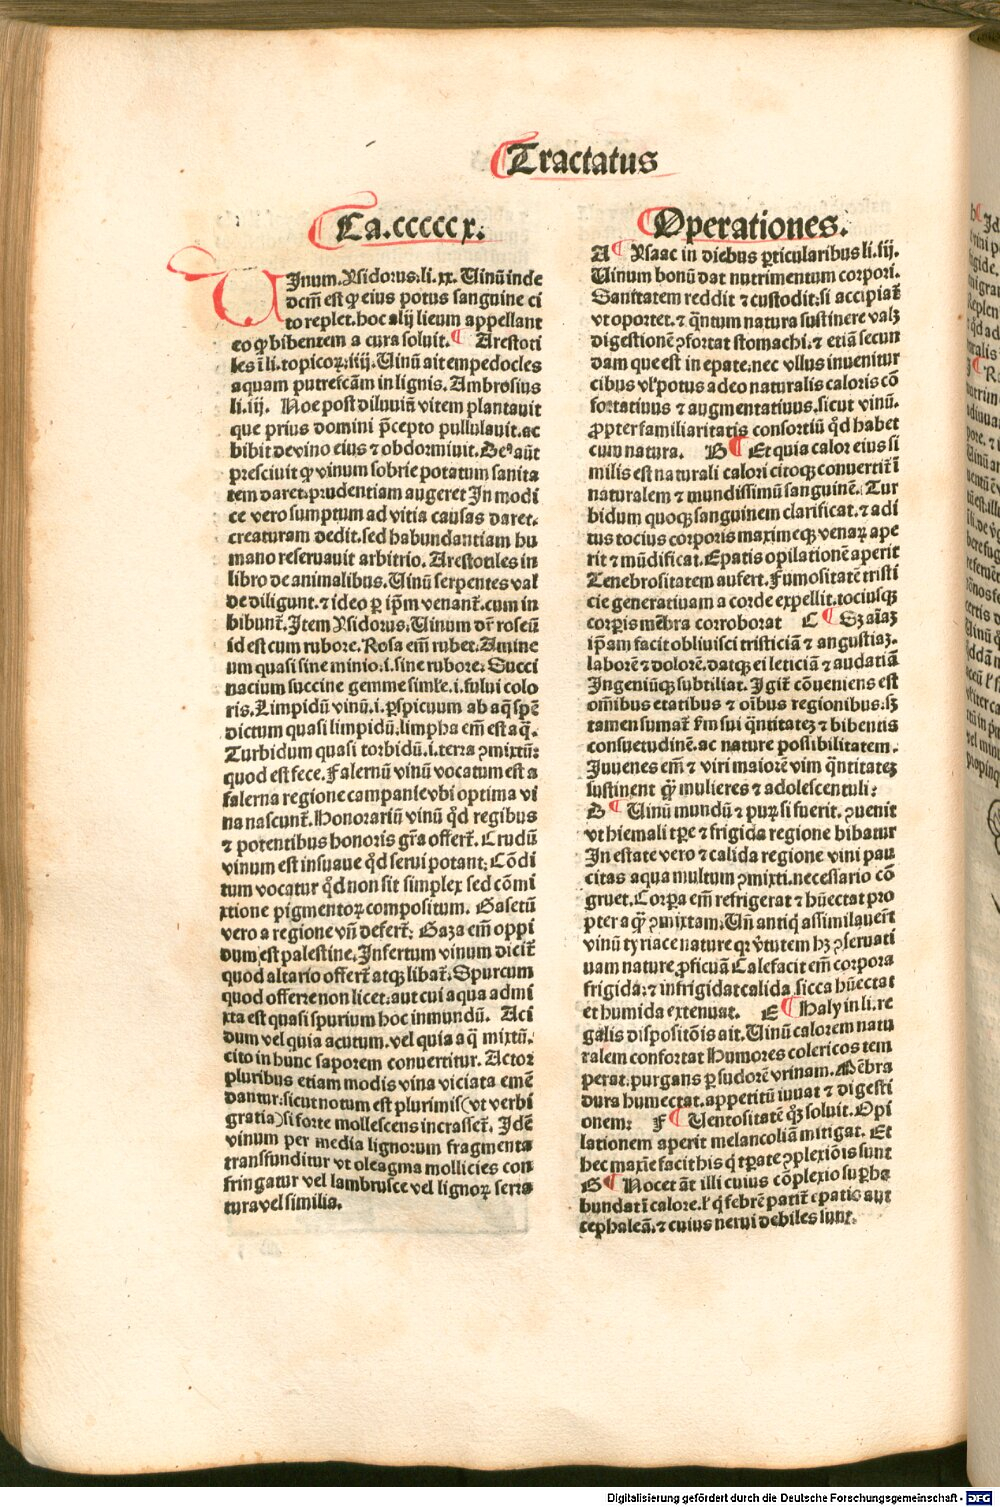 Tractatus
Ca.cccccx.
UInum. Ysidorus. li. xx. Uinū inde
dcm̄ est ꝙ eius potus sanguine ci
to replet. hoc alij lieum appellant
eo ꝙ bibentem a cura soluit. Arestoti
les ī li. topicoꝝ. iiij. Uinū ait empedocles
aquam putrefcām in lignis. Ambrosius
li. iij. Noe post diluuiū vitem plantauit
que prius domini p̄cepto pullulauit. ac
bibit de vino eius ⁊ obdormiuit. Deꝰ aūt
presciuit ꝙ vinum sobrie potatum sanita
tem daret. prudentiam augeret In modi
ce vero sumptum ad vitia causas daret.
creaturam dedit. sed habundantiam hu
mano reseruauit arbitrio. Arestotiles in
libro de animalibus. Uinū serpentes val
de diligunt. ⁊ ideo ꝑ ip̄m venant̄. cum in
bibunt̄. Item Ysidorus. Uinum dr̄ roseū
id est cum rubore. Rosa em̄ rubet. Amine
um quasi sine minio. i. sine rubore. Succi
nacium succine gemme simłe. i. fului colo
ris. Limpidū vinū. i. ꝑspicuum ab aq̄ spē
dictum quasi limpidū. limpha em̄ est aq̄.
Turbidum quasi torbidū. i. terra ꝯmixtū:
quod est fece. Falernū vinū vocatum est a
falerna regione campanie vbi optima vi
na nascunt̄. Honorariū vinū qd̄ regibus
⁊ potentibus honoris gr̄a offert̄. Crudū
vinum est insuaue qd̄ serui potant. Cōdi
tum vocatur qd̄ non sit simplex sed cōmi
xtione pigmentoꝝ compositum. Gasetū
vero a regione vn̄ defert̄. Gaza em̄ oppi
dum est palestine. Infertum vinum dicit̄
quod altario offert̄ atqꝫ libat̄. Spurcum
quod offerre non licet. aut cui aqua admi
xta est quasi spurium hoc inmundū. Aci
dum vel quia acutum. vel quia aq̄ mixtū.
cito in hunc saporem conuertitur. Actor
pluribus etiam modis vina viciata emē
dantur. sicut notum est plurimis (vt verbi
gratia) si forte mollescens incrasset̄. Idē
vinum per media lignorum fragmenta
transfunditur vt oleagma mollicies con
fringatur vel lambrusce vel lignoꝝ serra
tura vel similia.
Operationes.
A Ysaac in diebus ꝑticularibus li. iij.
Uinum bonū dat nutrimentum corpori.
Sanitatem reddit ⁊ custodit. si accipiat̄
vt oportet. ⁊ q̄ntum natura sustinere valꝫ
digestionē ꝯfortat stomachi. ⁊ etiā secun
dam que est in epate. nec vllus inuenitur
cibus vł potus adeo naturalis caloris cō
fortatiuus ⁊ augmentatiuus. sicut vinū.
ꝓpter familiaritatis consortiū qd̄ habet
cum natura. B Et quia calor eius si
milis est naturali calori citoqꝫ conuertit̄ ī
naturalem ⁊ mundissimū sanguinē. Tur
bidum quoqꝫ sanguinem clarificat. ⁊ adi
tus tocius corporis maximeqꝫ venaꝝ ape
rit ⁊ mūdificat. Epatis opilationē aperit
Tenebrositatem aufert. Fumositatē tristi
cie generatiuam a corde expellit. tociusqꝫ
corꝑis mēbra corroborat C Sz aīaꝫ
ip̄am facit obliuisci tristiciā ⁊ angustiaꝫ.
laborē ⁊ dolorē. datqꝫ ei leticiā ⁊ audatiā
Ingeniūqꝫ subtiliat. Igit̄ cōueniens est
om̄ibus etatibus ⁊ oībus regionibus. sꝫ
tamen sumat̄ ẜm sui q̄ntitateꝫ ⁊ bibentis
consuetudinē. ac nature possibilitatem.
Iuuenes em̄ ⁊ viri maiorē vim q̄ntitateꝫ
sustinent q̄ꝫ mulieres ⁊ adolescentuli:
D Uinū mundū ⁊ puꝝ si fuerit. ꝯuenit
vt hiemali tꝑe ⁊ frigida regione bibatur
In estate vero ⁊ calida regione vini pau
citas aqua multum ꝯmixti. necessario cō
gruet. Corꝑa em̄ refrigerat ⁊ hūectat pro
pter aq̄ꝫ ꝯmixtam. Un̄ antiqͥ assimilauer̄t
vinū tyriace nature qꝛ v̓tutem hꝫ ꝯseruati
uam nature ꝓficuā Calefacit em̄ corpora
frigida. ⁊ infrigidat calida. sicca hūectat
et humida extenuat. E Haly in li. re
galis dispositōis ait. Uinū calorem natu
ralem confortat Humores colericos tem
perat. purgans ꝑ sudorē vrinam. Mēbra
dura humectat. appetitū iuuat ⁊ digesti
onem: F Uentositatē qͦꝫ soluit. Opi
lationem aperit melancoliā mitigat. Et
hec maxīe facit his qͥ tꝑate ꝯplexiōis sunt
G Nocet aūt illi cuius cōplexio suꝑha
bundat ī calore. ł qͥ febrē patit̄ epatis aut
cephaleā. ⁊ cuius nerui debiles sunt.
Digitalisierung gefördert durch die Deutsche Forschungsgemeinschaft - DFG